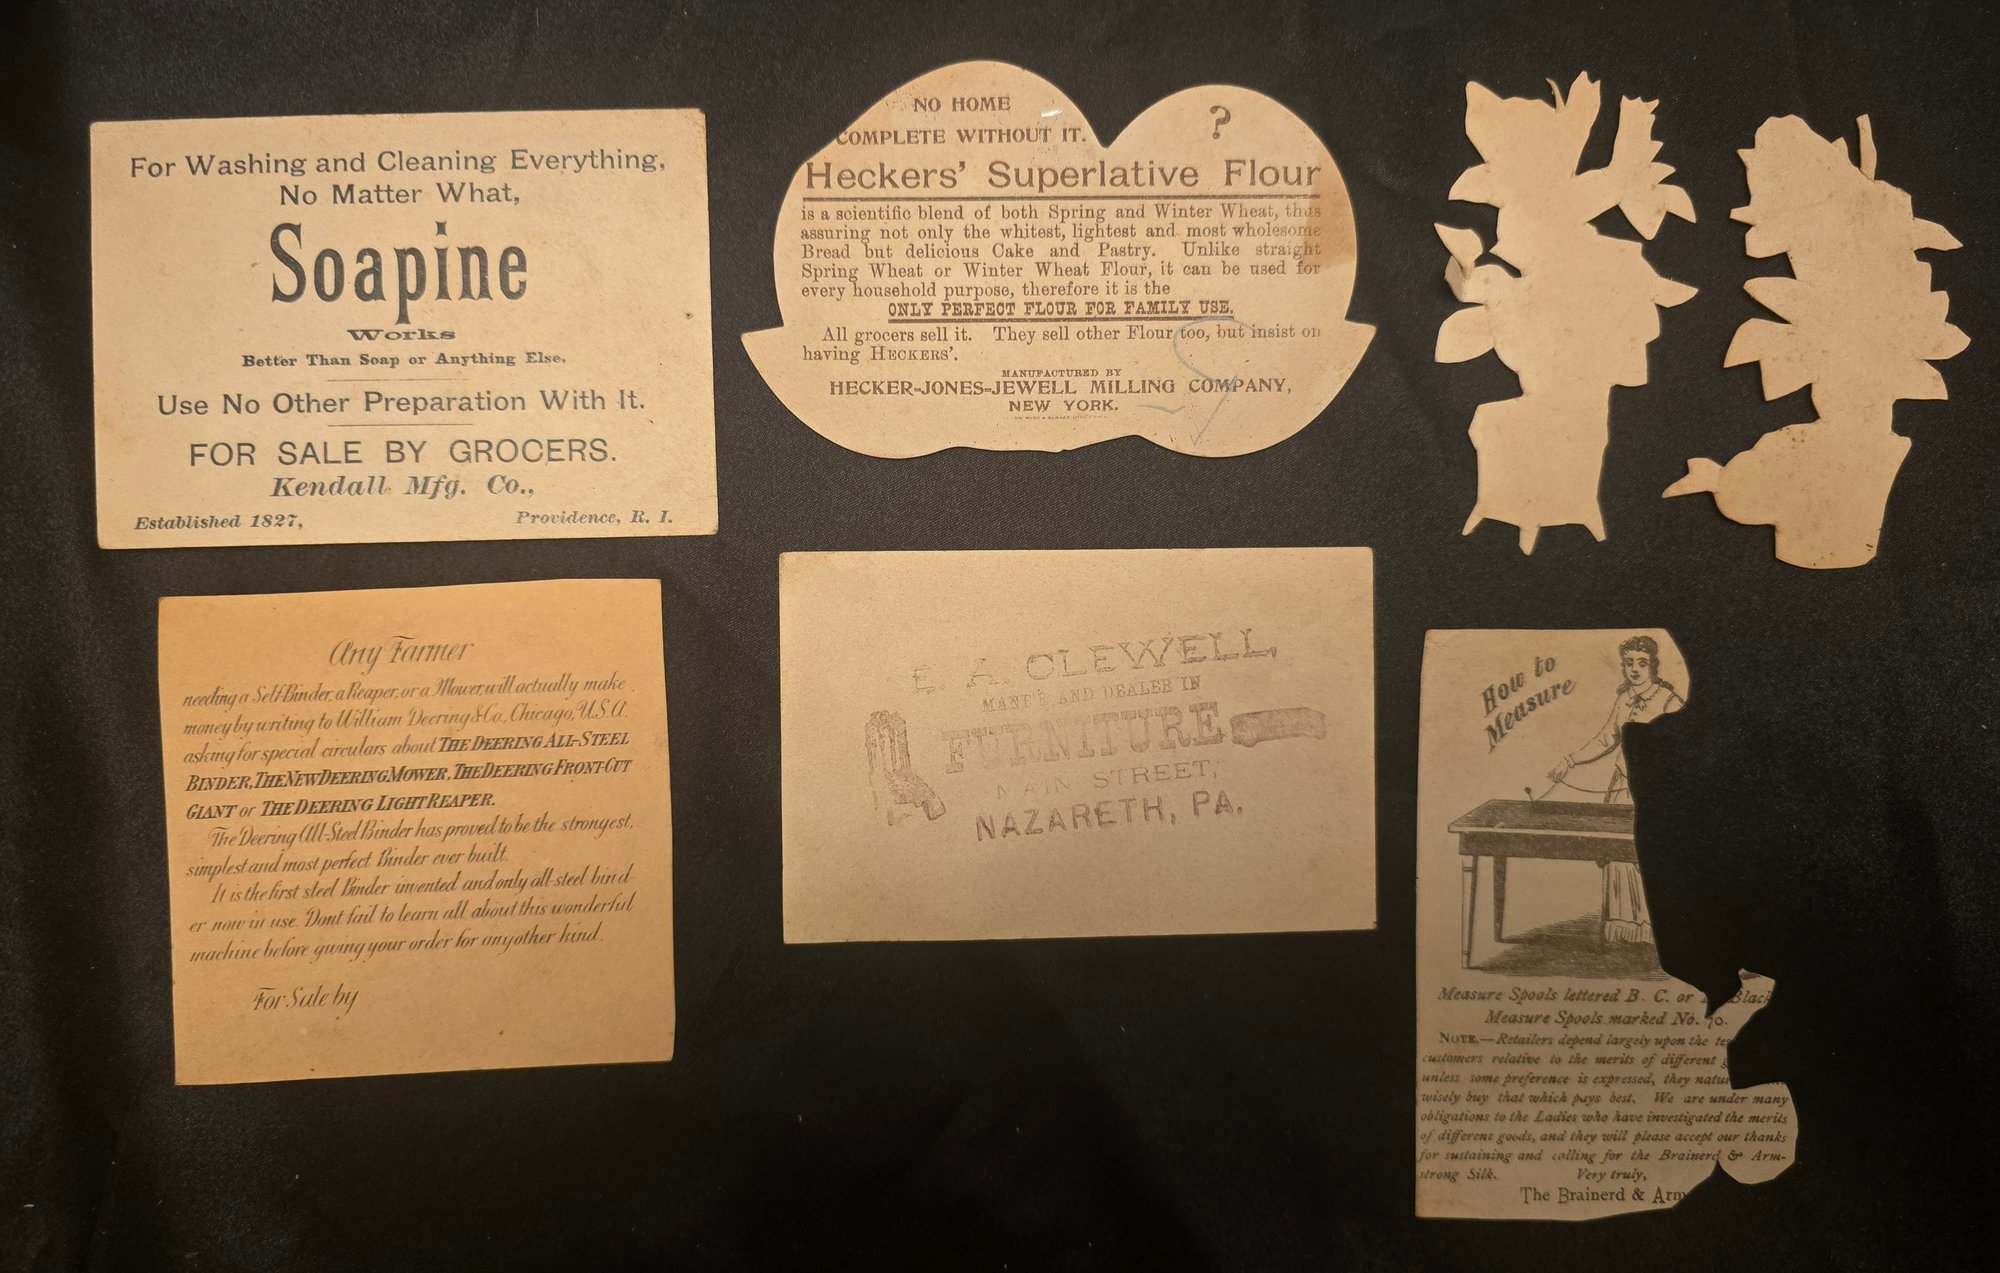 For Washing and Cleaning Everything,
No Matter What,
Soapine
Works
Better Than Soap or Anything Else.
Use No Other Preparation With It.
FOR SALE BY GROCERS.
Kendall Mfg. Co.,
Established 1827, Providence, R. I.
NO HOME
COMPLETE WITHOUT IT.
?
Heckers' Superlative Flour
is a scientific blend of both Spring and Winter Wheat, thus
assuring not only the whitest, lightest and most wholesome
Bread but delicious Cake and Pastry. Unlike straight
Spring Wheat or Winter Wheat Flour, it can be used for
every household purpose, therefore it is the
ONLY PERFECT FLOUR FOR FAMILY USE.
All grocers sell it. They sell other Flour too, but insist on
having HECKERS'.
MANUFACTURED BY
HECKER-JONES-JEWELL MILLING COMPANY,
NEW YORK.
Any Farmer
needing a Self-Binder, a Reaper, or a Mower, will actually make
money by writing to William Deering & Co., Chicago, U.S.A.
asking for special circulars about THE DEERING ALL-STEEL
BINDER, THE NEW DEERING MOWER, THE DEERING FRONT-CUT
GIANT or THE DEERING LIGHT REAPER.
The Deering All-Steel Binder has proved to be the strongest,
simplest and most perfect Binder ever built.
It is the first steel Binder invented and only all-steel bind
er now in use. Dont fail to learn all about this wonderful
machine before giving your order for any other kind.
For Sale by
E. A. CLEWELL,
MANF'R AND DEALER IN
FURNITURE
MAIN STREET,
NAZARETH, PA.
How to
Measure
Measure Spools lettered B. C. or Black
Measure Spools marked No. 70.
NOTE.—Retailers depend largely upon the
customers relative to the merits of different
unless some preference is expressed, they
wisely buy that which pays best. We are under many
obligations to the Ladies who have investigated the merits
of different goods, and they will please accept our thanks
for sustaining and calling for the Brainerd & Arm-
strong Silk. Very truly,
The Brainerd & Arm